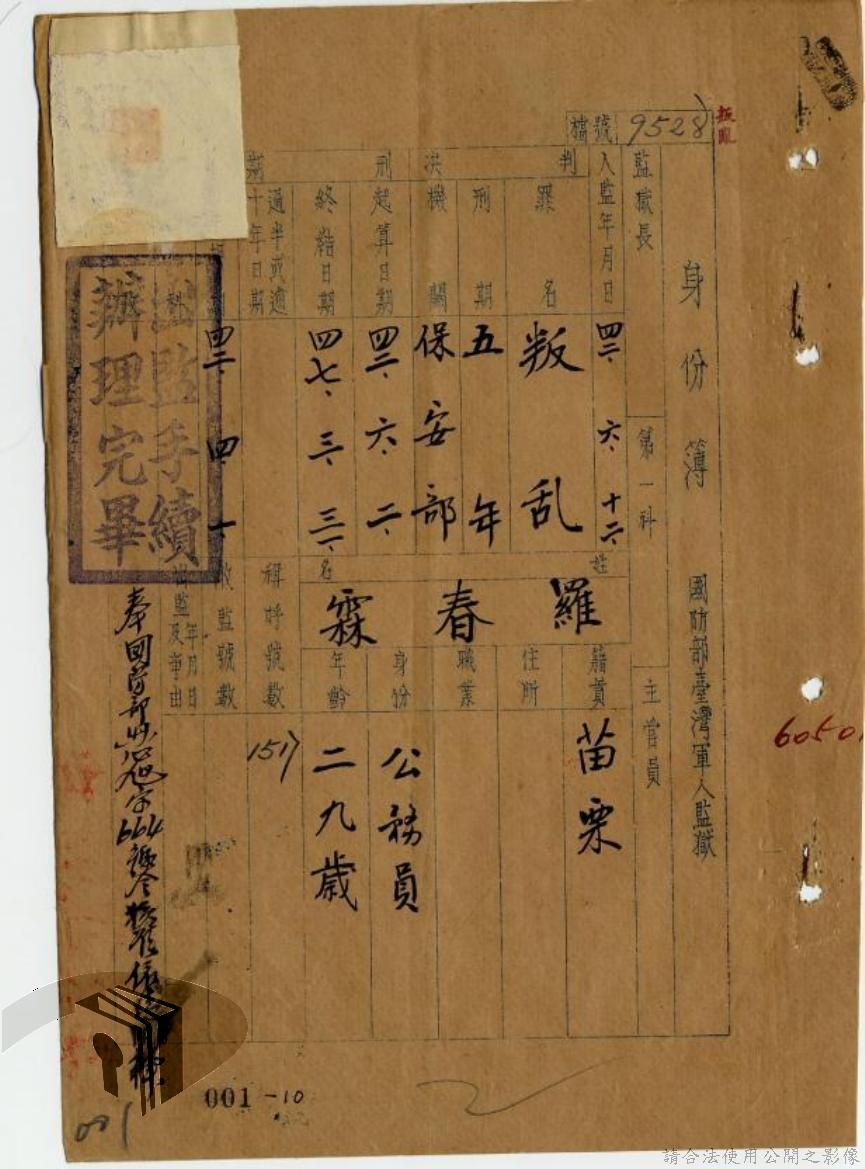 叛亂
檔號 9528
身份簿 國防部臺灣軍人監獄
監獄長 第一科 主官員
入監年月日 四二、六、十二、
判決
罪名 叛乱
刑期 五年
機關 保安部
刑期
起算日期 四二、六、二、
終結日期 四七、三、三一、
過半或逾十年日期
四二、四、一、
姓名 羅春霖
籍貫 苗栗
住所
職業
身份 公務員
年齡 二九歲
稱呼號數 1517
收監號數
出監年月日及事由
出監手續
辦理完畢
奉國防部
664
6050
001 -10
001
請合法使用公開之影像